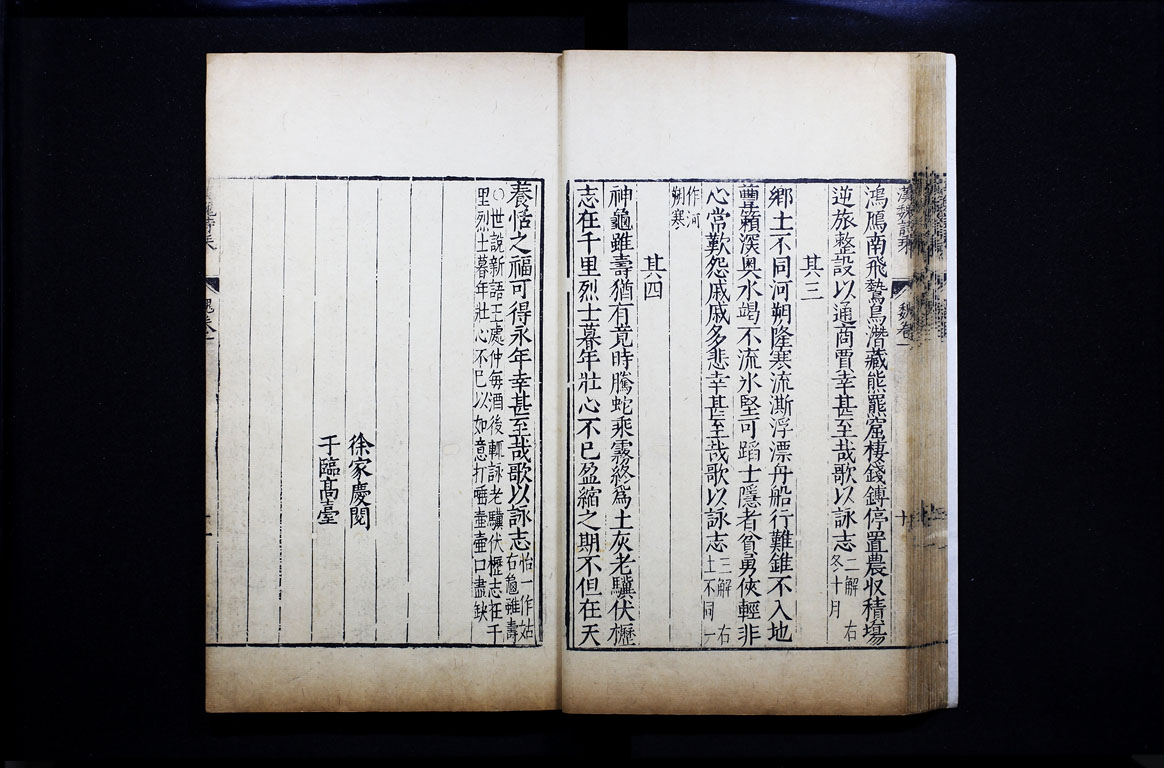 漢魏詩乘
魏卷一
十
鴻鴈南飛鷙鳥潛藏熊羆窟棲錢鎛停置農収積塲
逆旅整設以通商賈幸甚至哉歌以詠志二解 右
冬十月
其三
鄉土不同河朔隆寒流澌浮漂舟船行難錐不入地
蘴藾深奥水竭不流氷堅可蹈士隱者貧勇俠輕非
心常歎怨戚戚多悲幸甚至哉歌以詠志三解 右
土不同一
作河
朔寒
其四
神龜雖壽猶有竟時騰蛇乘霧終爲土灰老驥伏櫪
志在千里烈士暮年壯心不已盈縮之期不但在天
養恬之福可得永年幸甚至哉歌以詠志恬一作怡
右龜雖壽
○世說新語王處仲每酒後輒詠老驥伏櫪志在千
里烈士暮年壯心不已以如意打唾壺壺口盡缺
徐家慶閱
于臨高臺
魏卷一